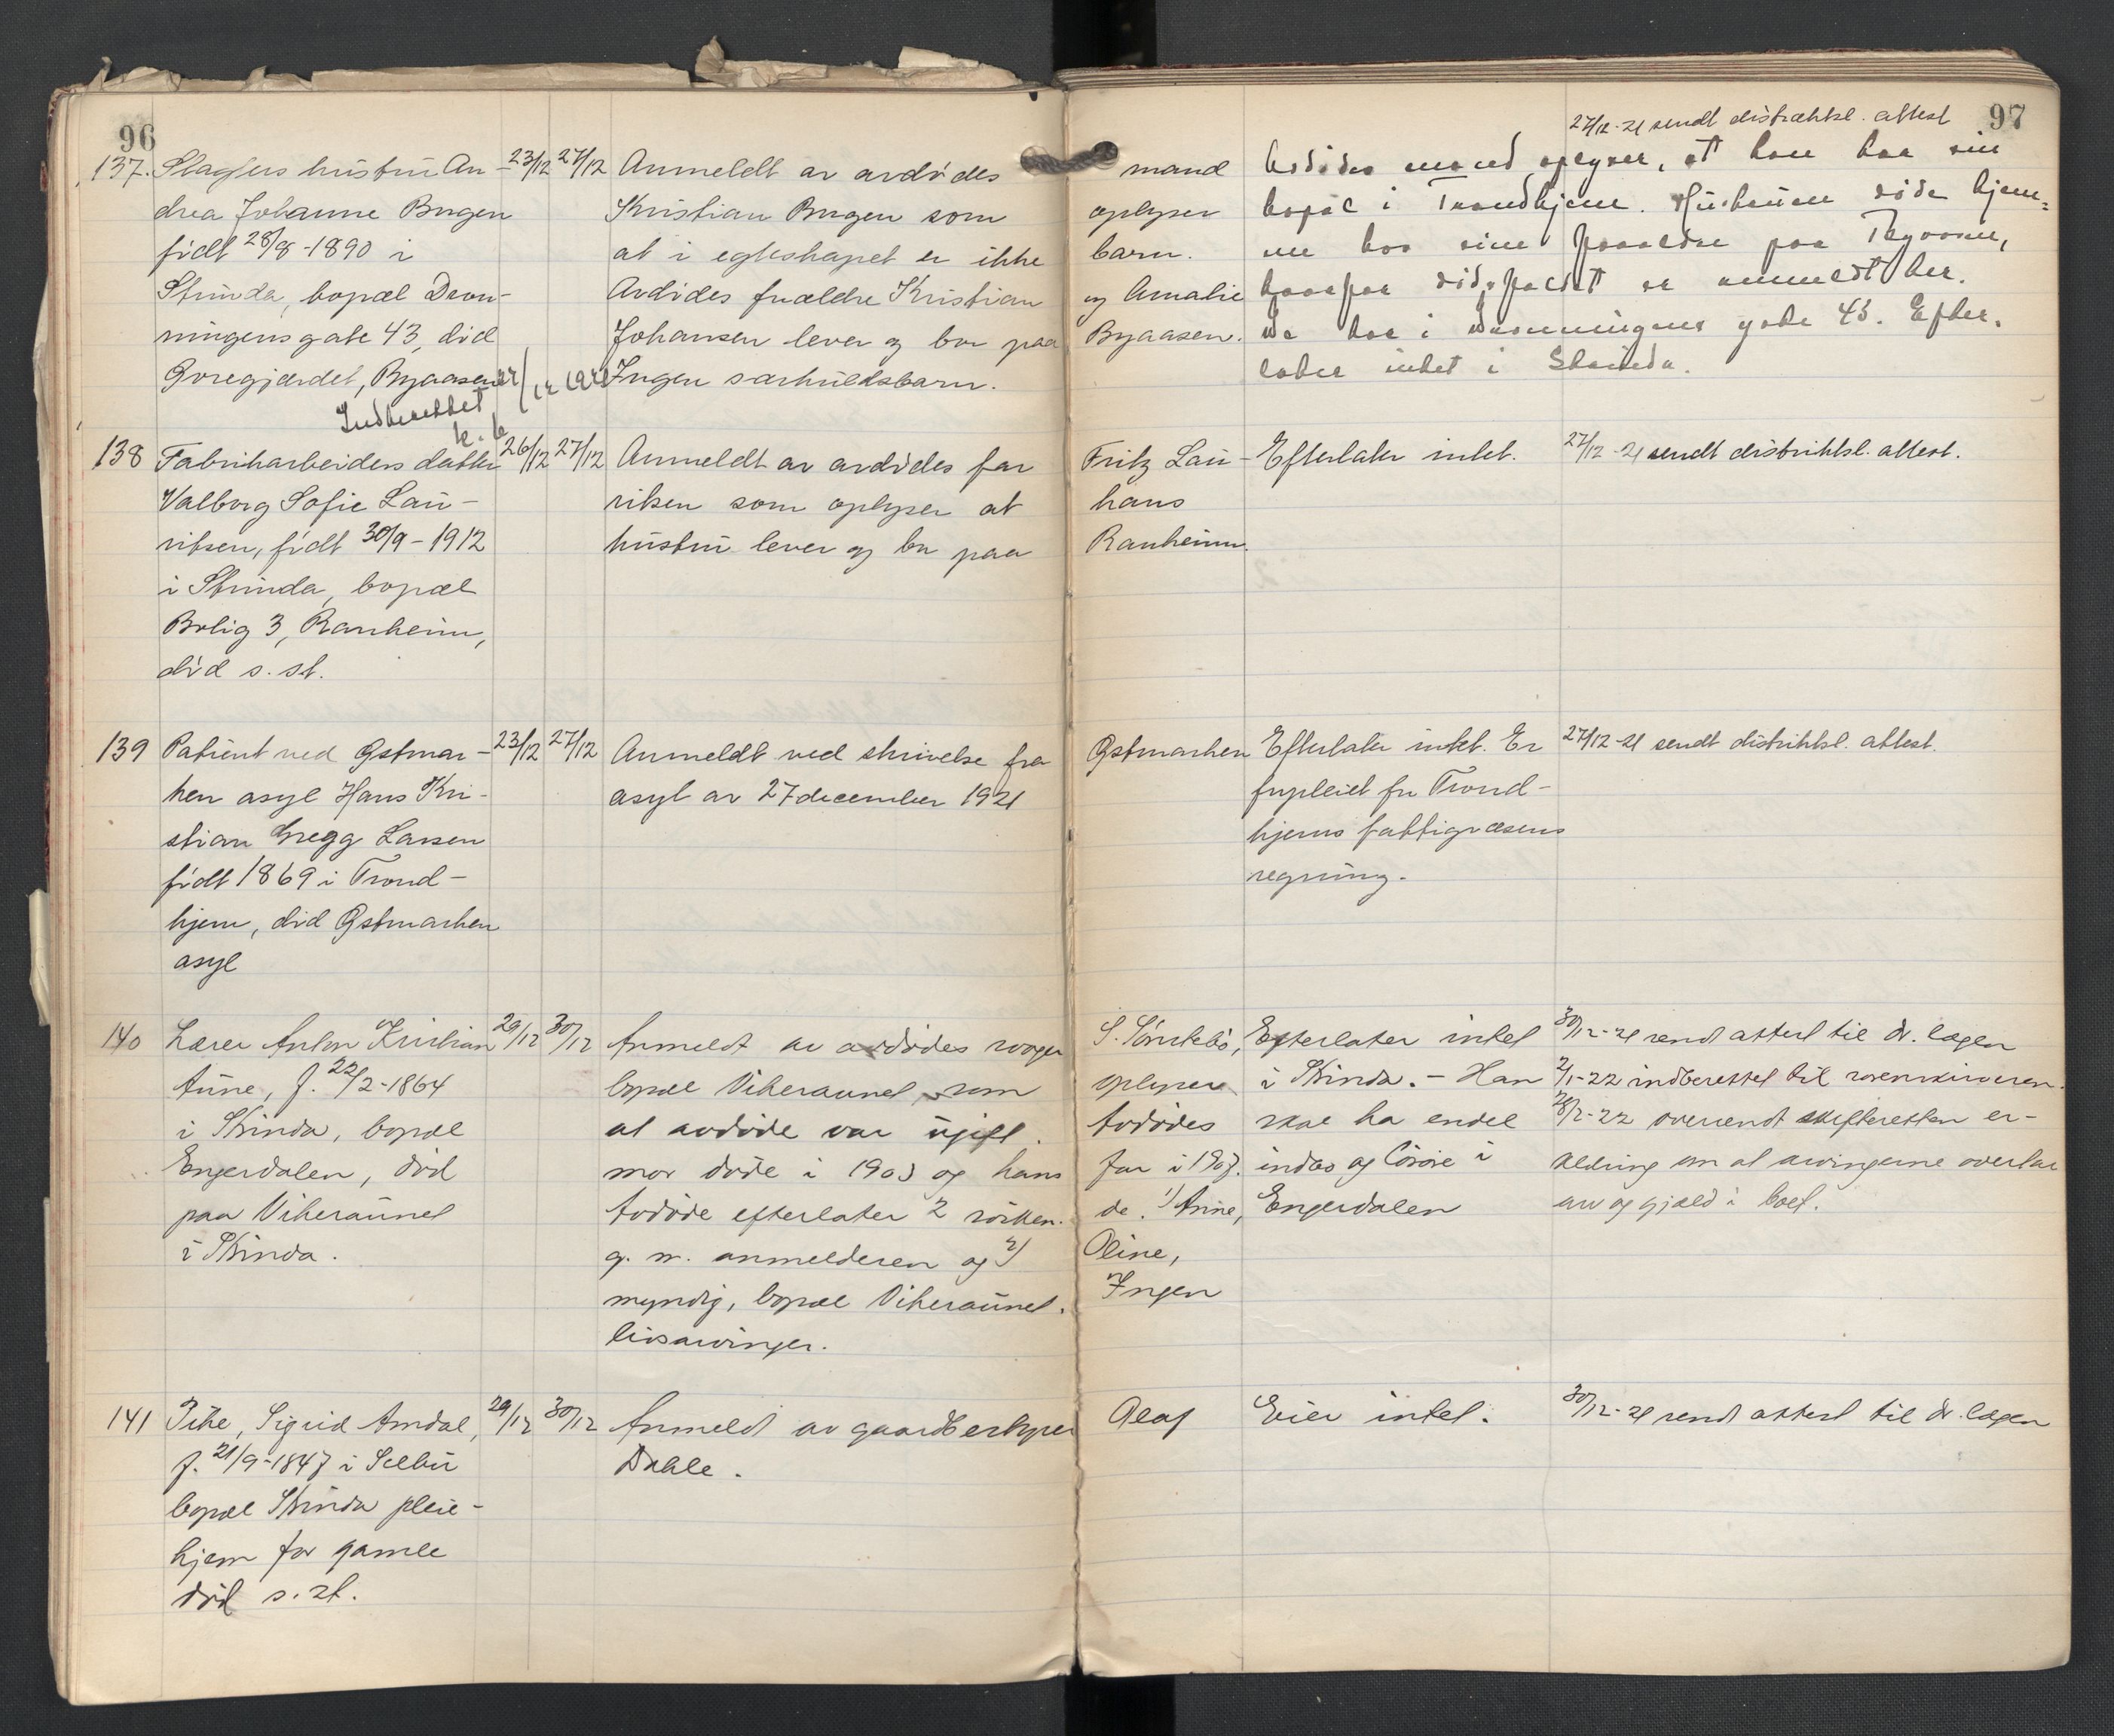 96
137. Slagters hustru An- 23/12 27/12 Anmeldt av avdödes mand
drea Johanne Brugen Kristian Brugen som oplyser
födt 28/8-1890 i at i egteskapet er ikke barn.
Strinda, bopæl Dron- Avdödes forældre Kristian og Amalie
ningens gate 43, död Johansen lever og bor paa Byaasen.
Gregjærdet, Byaasen Ingen særkuldsbarn.
Indberettet
27/12-21 sendt distriktsl. attest 97
Avdödes mand oplyser, at han har sin
bopæl i Trondhjem. Hustruen döde hjem-
me hos sine forældre paa Byaasen,
hvorfor dödsfaldet er anmeldt her.
De bor i Dronningens gate 43. Efter-
later intet i Strinda.
138 Fabrikarbeiders datter 26/12 27/12 Anmeldt av avdödes far Fritz Lau- Efterlater intet. 27/12-21 sendt distriktsl. attest.
Valborg Sofie Lau- ritsen som oplyser at hans
ritsen, födt 30/9-1912 hustru lever og bor paa Ranheim.
i Strinda, bopæl
Bolig 3, Ranheim,
död s. st.
139 Patient ved Østmar- 23/12 27/12 Anmeldt ved skrivelse fra Østmarken Efterlater intet. Er 27/12-21 sendt distriktsl. attest.
ken asyl Hans Kri- asyl av 27 december 1921 forpleiet for Trond-
stian Gregg Larsen hjems fattigvæsens
födt 1869 i Trond- regning.
hjem, död Østmarken
asyl
140 Lærer Anton Kristian 29/12 30/12 Anmeldt av avdödes svoger S. Sörslebö, Efterlater intet 30/12-21 sendt attest til dr. lægen
Aune, f. 22/2-1864 bopæl Vikeraunet, som oplyser i Strinda. - Han 2/1-22 indberettet til sorenskriveren.
i Strinda, bopæl at avdöde var ugift. Avdödes skal ha endel 28/2-22 oversendt skifteretten er-
Engerdalen, död mor döde i 1903 og hans far i 1907. indbo og lösöre i klæring om at arvingerne overtar
paa Vikeraunet Avdöde efterlater 2 sösken. de. 1) Anne, Engerdalen arv og gjæld i boet.
i Strinda. g. m. anmelderen og 2) Oline,
myndig, bopæl Vikeraunet. Ingen
livsarvinger.
141 Pike, Sigrid Amdal, 29/12 30/12 Anmeldt av gaardbestyrer Olaf Eier intet. 30/12-21 sendt attest til dr. lægen
f. 21/9-1847 i Selbu Dahle.
bopæl Strinda pleie-
hjem for gamle
död s. st.